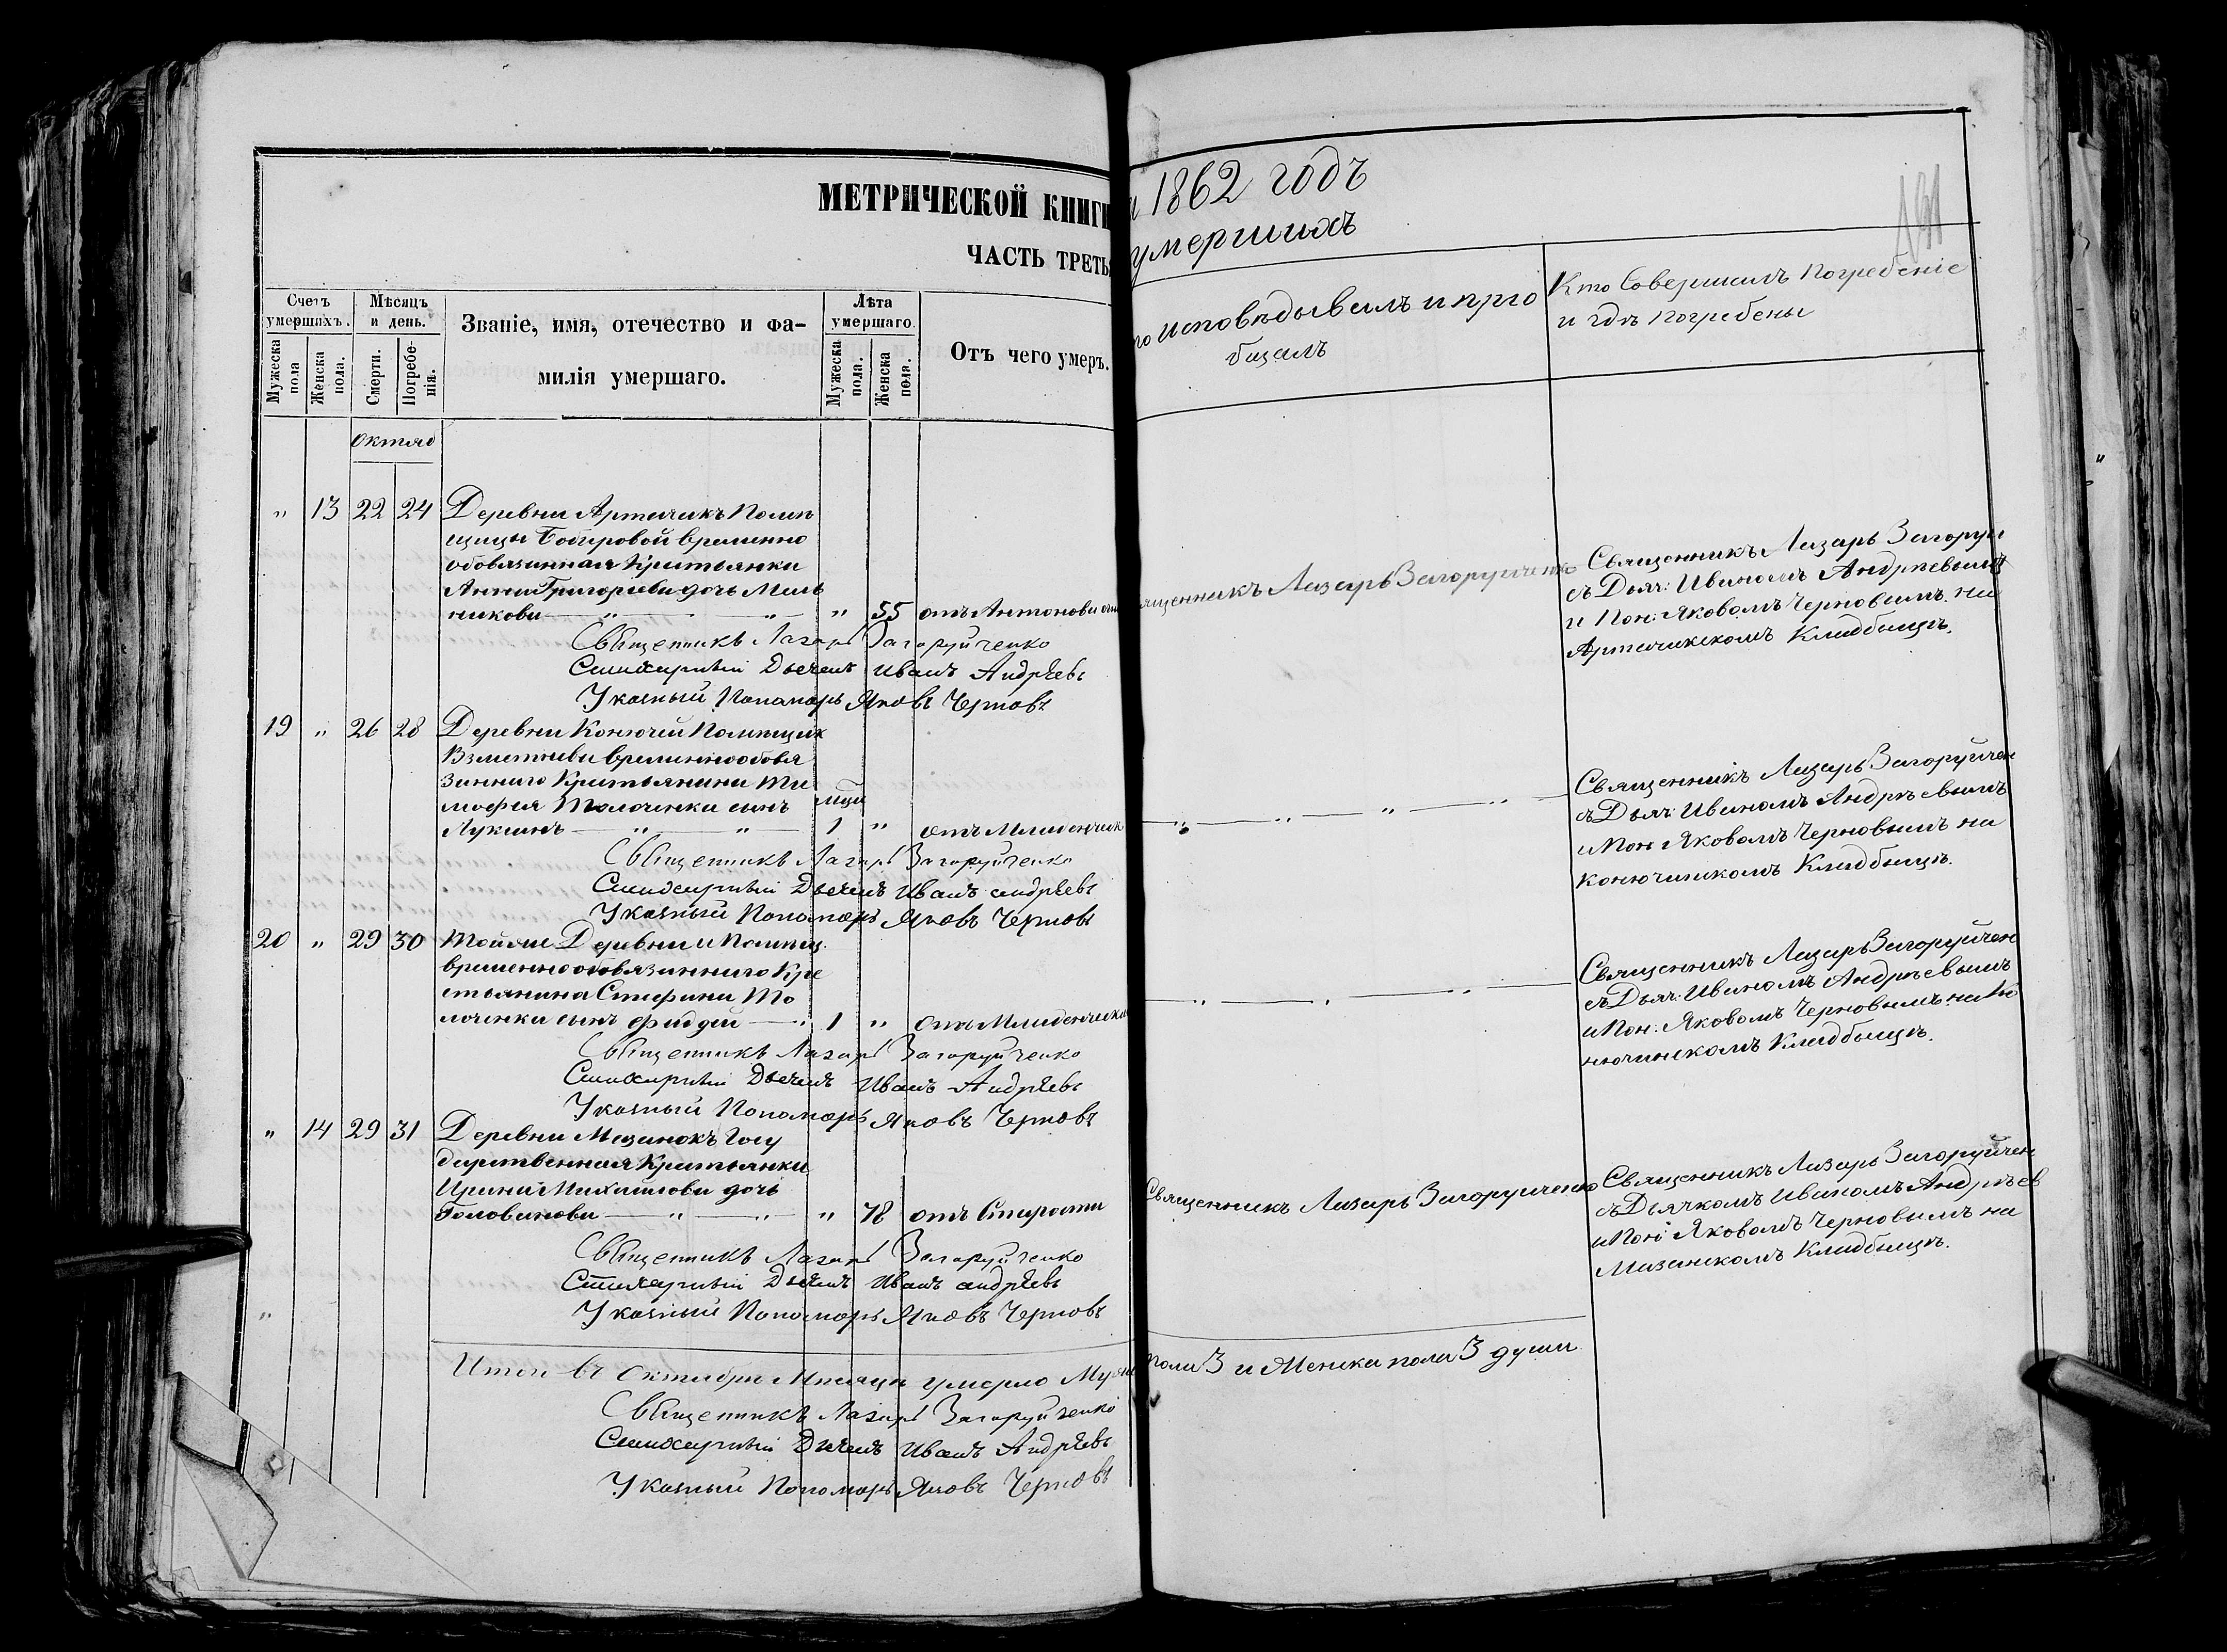 МЕТРИЧЕСКОЙ КНИГИ
ЧАСТЬ ТРЕТЬ
1862 годъ
умершихъ
Счетъ умершихъ.
Мужеска пола
Женска пола.
Мѣсяцъ и день.
Смерти.
Погребенія.
Званіе, имя, отечество и фамилія умершаго.
Лѣта умершаго.
Мужеска пола.
Женска пола.
Отъ чего умеръ.
исповѣдывалъ и прiо
бщалъ
Кто Совершилъ Погребеніе
и гдѣ погребены
Октяб
" 13 22 24 Деревни Артичикъ Помѣ
щицы временно
обовязанная Кристьянка
Анна Григорьева дочь Миль
никова " " " 55 отъ Антонова огн
Священникъ Лазарь Загоруйченко
Стихарный Дьячекъ Иванъ Андрѣевъ
Указный Пономарь Яковъ Черновъ
ященникъ Лазарь Загоруйченко
Священникъ Лазарь Загоруй
съ Дьяч: Иваномъ Андрѣевымъ
и Пон: Яковомъ Черновымъ на
Артичикскомъ Кладбищѣ.
19 " 26 28 Деревни Конючей Помѣщик
Взметнева временнообовя
занного Кристьянина Ти
мофея Толоченка сынъ
Лукианъ " " 1 " отъ Младенческ
мца
Священникъ Лазарь Загоруйченко
Стихарный Дьячекъ Иванъ Андрѣевъ
Указный Пономарь Яковъ Черновъ
" " " "
Священникъ Лазарь Загоруйчен
съ Дьяч: Иваномъ Андрѣевымъ
и Пон Яковомъ Черновымъ на
Конючинскомъ Кладбищѣ.
20 " 29 30 Тойже Деревни и Помѣщ.
временнообовязанного Кре
стьянина Стефана То
лоченка сынъ Фаддей " 1 " отъ Младенческа
Священникъ Лазарь Загоруйченко
Стихарный Дьячекъ Иванъ Андрѣевъ
Указный Пономарь Яковъ Черновъ
" " "
Священникъ Лазарь Загоруйчен
съ Дьяч: Иваномъ Андрѣевымъ
и Пон: Яковомъ Черновымъ на Ко
нючинскомъ Кладбищѣ.
" 14 29 31 Деревни Мазанокъ Госу
дарственная Кристьянка
Ирина Михайлова дочь
Голованова " " " 78 отъ Старости
Священникъ Лазарь Загоруйченко
Стихарный Дьячекъ Иванъ Андрѣевъ
Указный Пономарь Яковъ Черновъ
Священникъ Лазарь Загоруйченко
Священникъ Лазарь Загоруйчен
съ Дьячкомъ Иваномъ Андрѣев
и Пон: Яковомъ Черновымъ на
Мазанскомъ Кладбищѣ.
"
Итого въ Октябрѣ Мѣсяцѣ умерло Муж
пола 3 и Женска пола 3 души
Священникъ Лазарь Загоруйченко
Стихарный Дьячекъ Иванъ Андрѣевъ
Указный Пономарь Яковъ Черновъ